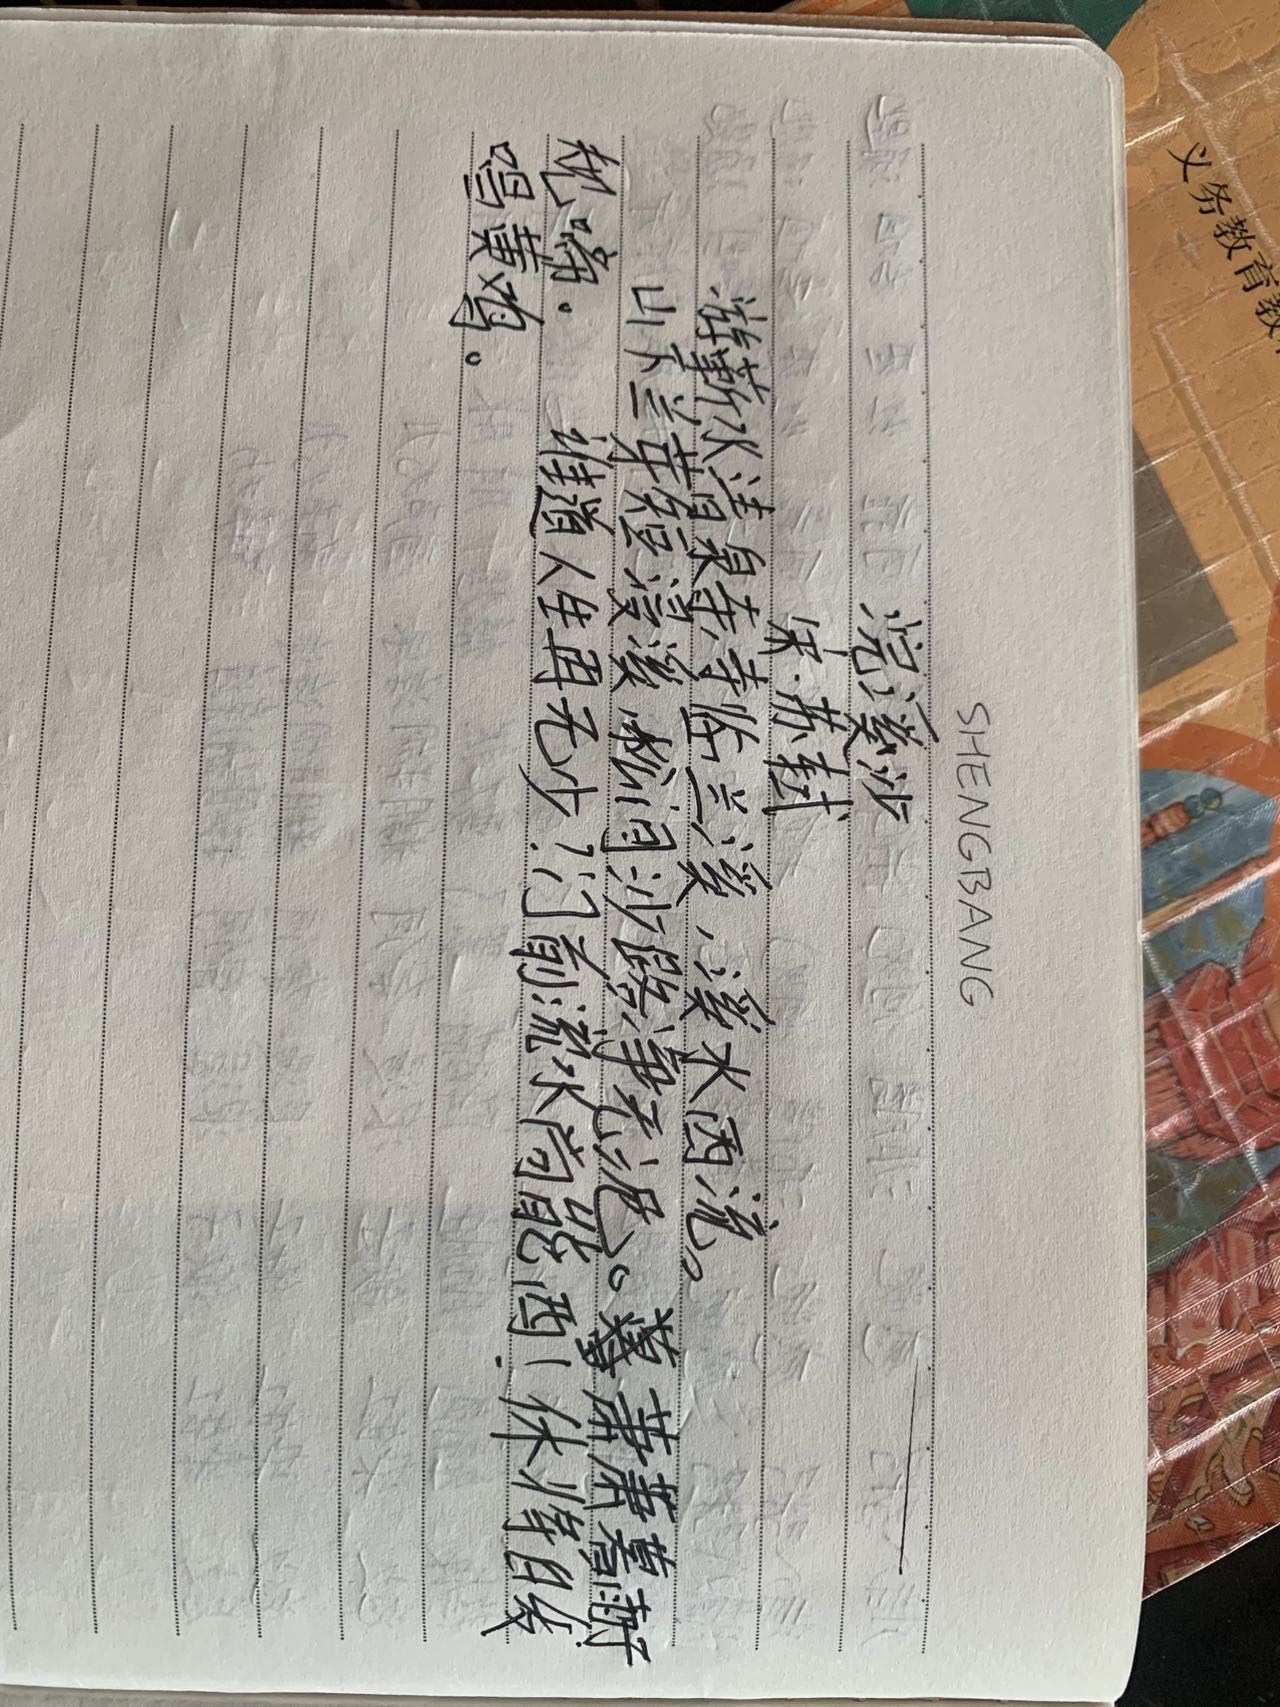 SHENGBANG
浣溪沙
宋·苏轼
游蕲水清泉寺寺临兰溪,溪水西流。
山下兰芽短浸溪松间沙路净无泥。萧萧暮雨子
规啼.谁道人生再无少?门前流水尚能西!休将白发
唱黄鸡。
义务教育教